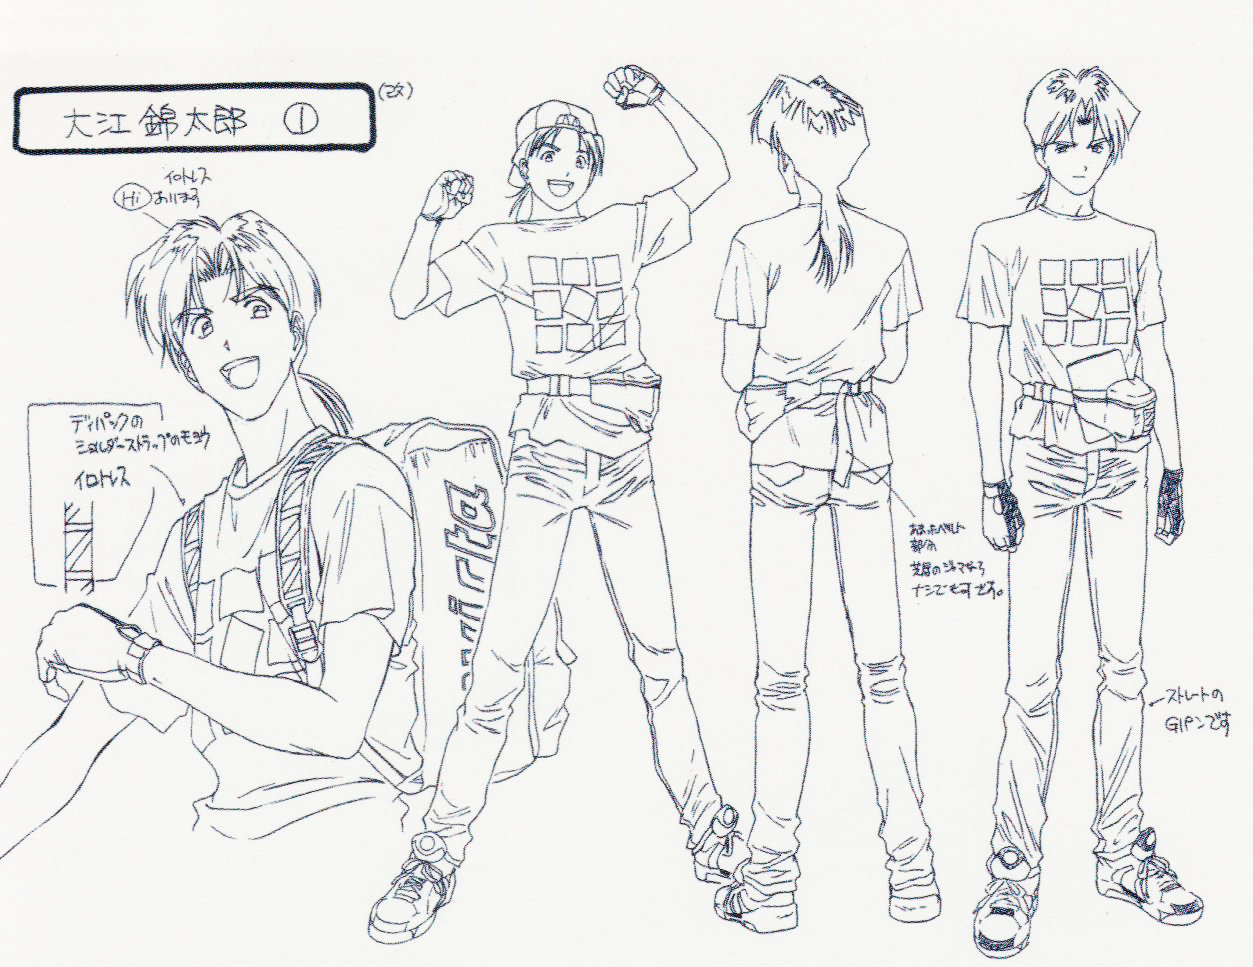 大江錦太郎 ①
(改)
イロトレス
Hi あります
デイパックの
ショルダーストラップのモヨウ
イロトレス
あまったベルト
部分
芝居のジャマなら
ナシでもすせう。
ストレートの
Gパンです